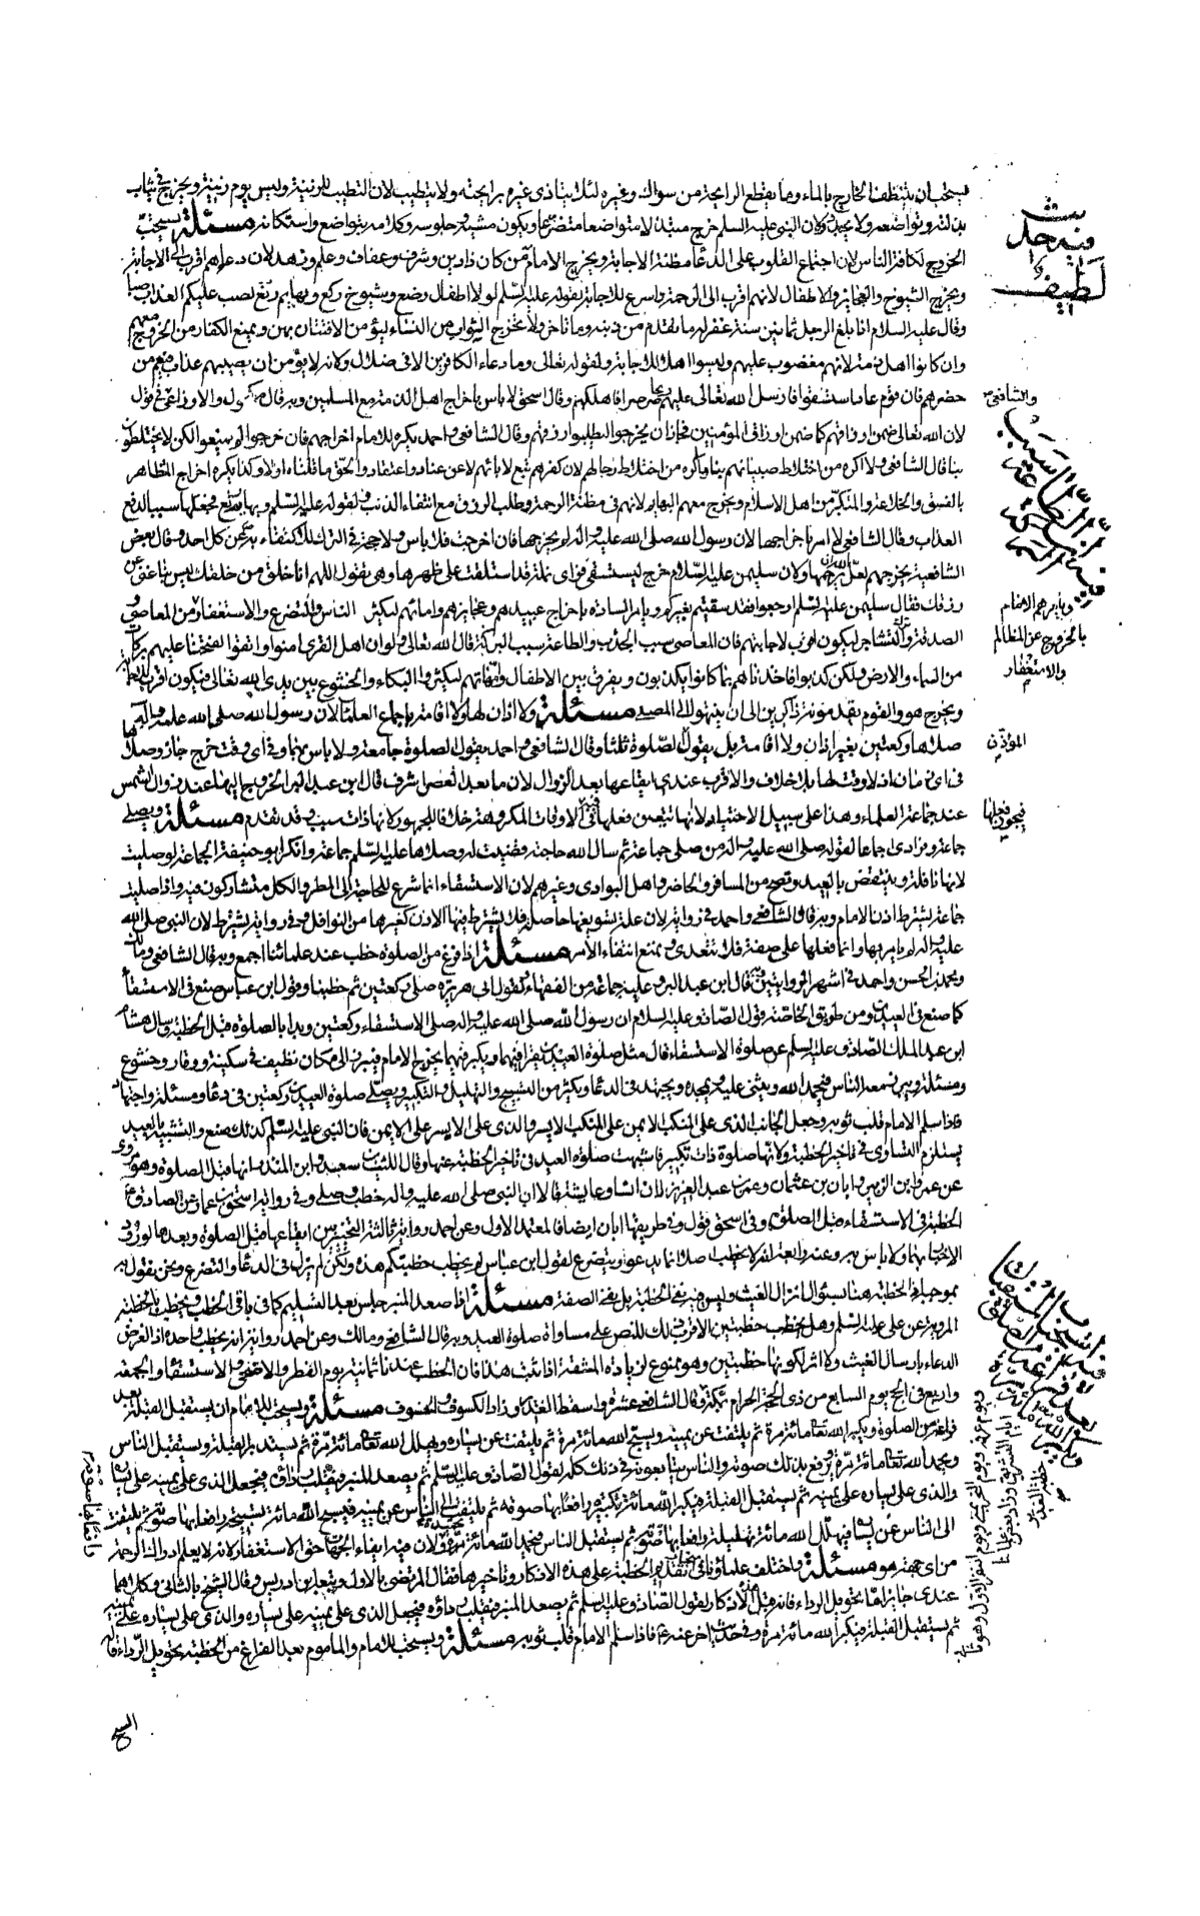 يستحب ان يتنظف الخارج بالماء وما يقطع الرايحة من سواك وغيره لئلا يتاذى غيره برايحته ولا يتطيب لان التطيب للزينة وليس يوم زينة ويخرج في ثياب
بذلته وتواضعه ولا يجدد ولان النبى عليه السلم خرج مبتذلا متواضعا متضرعا ويكون مشيه وجلوسه وكلامه بتواضع واستكانة مسئلة يستحب
الخروج لكافة الناس لان اجتماع القلوب على الدعا مظنة الاجابة ويخرج الامام من كان ذا دين وشرف وعفاف وعلم وزهد لان دعاءهم اقرب الى الاجابة
ويخرج الشيوخ والعجايز والاطفال لانهم اقرب الى الرحمة واسرع للاجابة لقوله عليه السلم لولا اطفال رضع وشيوخ ركع وبهايم رتع لصب عليكم العذاب صبا
وقال عليه السلام اذا بلغ الرجل ثمانين سنة غفر له ما تقدم من ذنبه وما تاخر ولا تخرج الشواب من النساء ليؤمن الافتتان بهن ويمنع الكفار من الخروج معهم
وان كانوا اهل ذمة لانهم مغضوب عليهم وليسوا اهلا للاجابة ولقوله تعالى وما دعاء الكافرين الا فى ضلال ولانه لا يؤمن ان يصيبهم عذاب فيعم من
حضرهم فان قوم عاد استسقوا فارسل الله تعالى عليهم ريحا صرصرا فاهلكهم وقال اسحق لا باس باخراج اهل الذمة مع المسلمين وبه قال مكحول والاوزاعى فى قول
لان الله تعالى ضمن ارزاقهم كما ضمن ارزاق المؤمنين فجاز ان يخرجوا ليطلبوا رزقهم وقال الشافعى واحمد يكره للامام اخراجهم فان خرجوا لم يمنعوا لكن لا يختلطون
بنا قال الشافعى ولا اكره من اختلاط صبيانهم بنا ما اكره من اختلاط رجالهم لان كفرهم تبع لابائهم لا عن عناد واعتقاد والحق ما قلناه اولا وكذا يكره اخراج المتظاهر
بالفسق والخلاعة والمنكر من اهل الاسلام ويخرج معهم البهايم لانهم فى مظنة الرحمة وطلب الرزق مع انتفاء الذنب ولقوله عليه السلم وبهايم رتع فجعلها سببا لدفع
العذاب وقال الشافعى لا امر باخراجها لان رسول الله صلى الله عليه واله لم يخرجها فان اخرجت فلا باس ولا حجة فى الترك وقال بعض
الشافعية يخرجهم لعل الله يرحمها ولان سليمن عليه السلام خرج ليستسقى فراى نملة قد استلقت على ظهرها وهى تقول اللهم انا خلق من خلقك ليس بنا غنى عن
رزقك فقال سليمن عليه السلم ارجعوا فقد سقيتم بغيركم ويامر الساده باخراج عبيدهم وعجايزهم وامائهم ليكثر الناس والتضرع والاستغفار من المعاصى و
الصدقة وترك التشاجر ليكون اقرب لاجابتهم فان المعاصى سبب الجدب والطاعة سبب البركة قال الله تعالى ولو ان اهل القرى امنوا واتقوا لفتحنا عليهم بركات
من السماء والارض ولكن كذبوا فاخذناهم بما كانوا يكذبون ويفرق بين الاطفال وامهاتهم ليكثروا البكاء والخشوع بين يدى الله تعالى فيكون اقرب للاجابة
ويخرج هو والقوم يقدمونه ذاكرين الى ان ينتهوا الى المصلى مسئلة ولا اذان لها ولا اقامة باجماع العلماء لان رسول الله صلى الله عليه واله
صلاها ركعتين بغير اذان ولا اقامة بل يقول الصلوة ثلثا وقال الشافعى واحمد يقول الصلوة جامعة ولا باس بهما وفى اى وقت خرج جاز وصلاها
فى اى زمان اذ لا وقت لها بلا خلاف والاقرب عندى ايقاعها بعد الزوال لان ما بعد العصر اشرف قال ابن عبد البر الخروج اليها عند زوال الشمس
عند جماعة العلماء وهذا على سبيل الاختيار لا انها يتعين فعلها فيه الاوقات المكروهة خلافا للجمهور لانها ذات سبب وقد تقدم مسئلة ويصلى
جماعة وفرادى اجماعا لقوله صلى الله عليه واله من صلى جماعة ثم سال الله حاجته قضيت له وصلاها عليه السلم جماعة وانكر ابو حنيفة الجماعة لو صليت
لانها نافلة وينتقض بالعيد وتصح من المسافر والحاضر واهل البوادى وغيرهم لان الاستسقاء انما شرع للحاجة الى المطر والكل متشاركون فيه واذا صليت
جماعة لم يشترط اذن الامام وبه قال الشافعى واحمد فى رواية لان علة تسويغها حاصلة فلا يشترط فيها الاذن كغيرها من النوافل وفى رواية يشترط لان النبى صلى الله
عليه واله لم يامر بها وانما فعلها على صفة فلا تتعدى ونمنع انتفاء الامر مسئلة اذا فرغ من الصلوة خطب عند علمائنا اجمع وبه قال الشافعى ومالك
ومحمد بن الحسن واحمد فى اشهر الروايتين قال ابن عبد البر وعليه جماعة من الفقهاء لقول ابى هريرة صلى ركعتين ثم خطبنا وقول ابن عباس صنع فى الاستسقاء
كما صنع فى العيدين ومن طريق الخاصة قول الصادق عليه السلام ان رسول الله صلى الله عليه واله صلى الاستسقاء ركعتين وبدا بالصلوة قبل الخطبة وسال هشام
ابن عبد الملك الصادق عليه السلم عن صلوة الاستسقاء قال مثل صلوة العيدين يقرا فيها ويكبر فيها يخرج الامام فيبرز الى مكان نظيف فى سكينة ووقار وخشوع
ومسئلة ويبرز معه الناس فيحمد الله ويثنى عليه ويمجده ويجتهد فى الدعا ويكثر من التسبيح والتهليل والتكبير ويصلى صلوة العيدين ركعتين فى دعا ومسئلة واجتهاد
فاذا سلم الامام قلب ثوبه وجعل الجانب الذى على المنكب الايمن على المنكب الايسر والذى على الايسر على الايمن فان النبى عليه السلم كذلك صنع والتشبيه بالعيد
يستلزم التساوى فى تاخير الخطبة ولانها صلوة ذات تكبير فاشبهت صلوة العيد فى تاخير الخطبة عنها وقال الليث بن سعد وابن المنذر انها قبل الصلوة وهو مروى
عن عمر وابن الزبير وابان بن عثمان وعمر بن عبد العزيز لان انسا وعايشة قالا ان النبى صلى الله عليه واله خطب وصلى وفى رواية اسحق بن عمار عن الصادق ع
الخطبة فى الاستسقاء قبل الصلوة وفى اسحق قول وفى طريقها ابان ايضا فالمعتمد الاول وعن احمد رواية ثالثة التخيير بين ايقاعها قبل الصلوة وبعدها لورود
الاخبار بهما ولا باس به وعنه رابعة انه لا يخطب اصلا انما يدعو ويتضرع لقول ابن عباس لم يخطب خطبتكم هذه ولكن لم يزل فى الدعا والتضرع ونحن نقول به
بموجبه اذ الخطبة هنا سؤال انزال الغيث وليس فيه نفى الخطبة بل نفى الصفة مسئلة اذا صعد المنبر جلس بعد التسليم كما فى باقى الخطب ويخطب بالخطبة
المروية عن على عليه السلم وهل يخطب خطبتين الاقرب ذلك للنص على مساواة صلوة العيد وبه قال الشافعى ومالك وعن احمد رواية انه يخطب واحدة اذ الغرض
الدعاء بارسال الغيث ولا اثر لكونها خطبتين وهو ممنوع لزيادة المشقة اذا ثبت هذا فان الخطب عندنا ثمانية يوم الفطر والاضحى والاستسقاء والجمعة
واربع فى الحج يوم السابع من ذى الحجة الحرام بمكة وقال الشافعى عشرة واسقط الغدير وزاد الكسوف والخسوف مسئلة ويستحب للامام ان يستقبل القبلة بعد
فراغه من الصلوة ويكبر الله تعالى مائة مرة ثم يلتفت عن يمينه ويسبح الله مائة مرة ثم يلتفت عن يساره ويهلل الله تعالى مائة مرة ثم يستدبر القبلة ويستقبل الناس
ويحمد الله تعالى مائة مرة يرفع بذلك صوته والناس يتابعونه فى ذلك كله لقول الصادق عليه السلم ثم يصعد المنبر فيقلب رداؤه فيجعل الذى على يمينه على يساره
والذى على يساره على يمينه ثم يستقبل القبلة فيكبر الله مائة تكبيرة رافعا بها صوته ثم يلتفت الى الناس عن يمينه فيسبح الله مائة تسبيحة رافعا بها صوته ثم يلتفت
الى الناس عن يساره فيهلل الله مائة تهليلة رافعا بها صوته ثم يستقبل الناس فيحمد الله مائة تحميدة ولان فيه ايفاء الجهات حق الاستغفار لانه لا يعلم ادراك الرحمة
من اى جهة هو مسئلة واختلف علماؤنا فى تقديم الخطبة على هذه الاذكار وتاخيرها فقال المرتضى بالاول وتبعه ابن ادريس وقال الشيخ بالثانى وكلاهما
عندى جايز اما تحويل الرداء فانه قبل الاذكار لقول الصادق عليه السلم ثم يصعد المنبر فيقلب رداؤه فيجعل الذى على يمينه على يساره والذى على يساره على يمينه
ثم يستقبل القبلة فيكبر الله مائة مرة وفى حديث اخر عنه ع فاذا سلم الامام قلب ثوبه مسئلة ويستحب للامام والماموم بعد الفراغ من الخطبة تحويل الرداء قال
الشيخ
فيه حديث
لطيف
والشافعى
ويامرهم الامام
بالخروج عن المظالم
والاستغفار
المؤذن
فيجوز فعلها
رافعا بها صوته